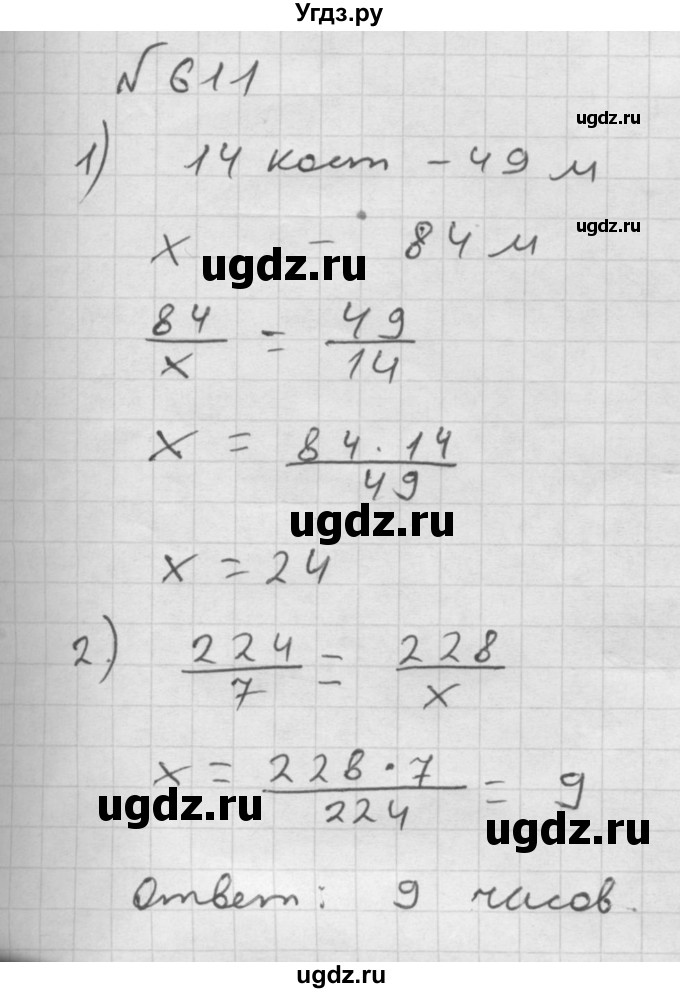 Угдз.ру
№ 611
ugdz.ru
1) 14 кост - 49 м
ugdz.ru
x - 84 м
ugdz.ru
84/x = 49/14
x = 84 · 14/49
ugdz.ru
x = 24
2) 224/7 = 228/x
x = 228 · 7/224 = 9
ugdz.ru
ugdz.ru
Ответ: 9 часов.
ugdz.ru